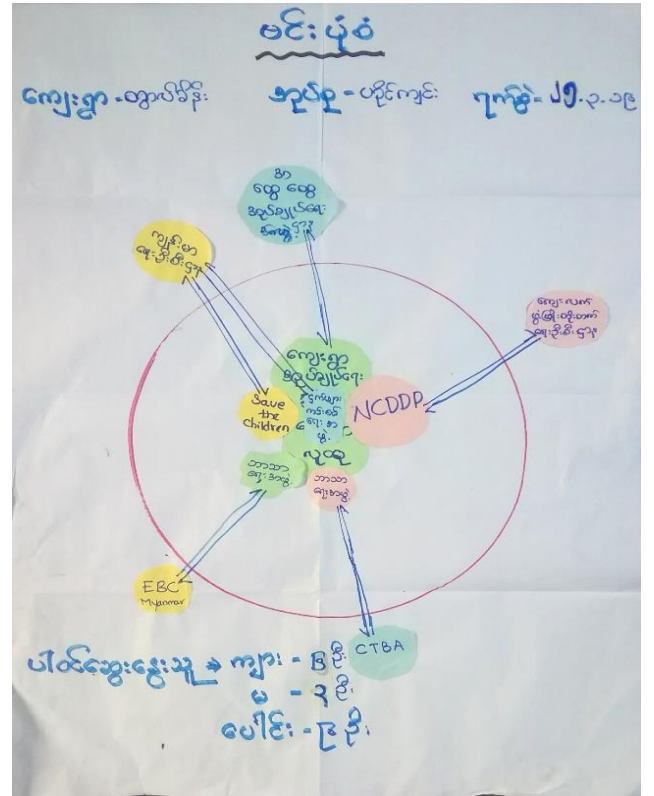 မင်းပုံစံ
ကျေးရွာ - တွာလ်ခိန်း အုပ်စု - ပှိုင်ကျင်း ရက်စွဲ - ၂၅.၃.၁၉
ထွေ ထွေ
အုပ်ချုပ်ရေး
ကျန်းမာ
ရေးဦးစီးဌာန
ကျေးလက်
ဖွံ့ဖြိုးတိုးတက်
ရေးဦးစီးဌာန
ကျေးရွာ
အုပ်ချုပ်ရေး
Save
the
children
NCDDP
လူထု
ဘာသာ
ရေးအဖွဲ့
ဘာသာ
ရေးအဖွဲ့
EBC
Myanmar
CTBA
ပါဝင်ဆွေးနွေးသူ → ကျား - ၆ ဦး
မ - ၃ ဦး
ပေါင်း - ၉ ဦး